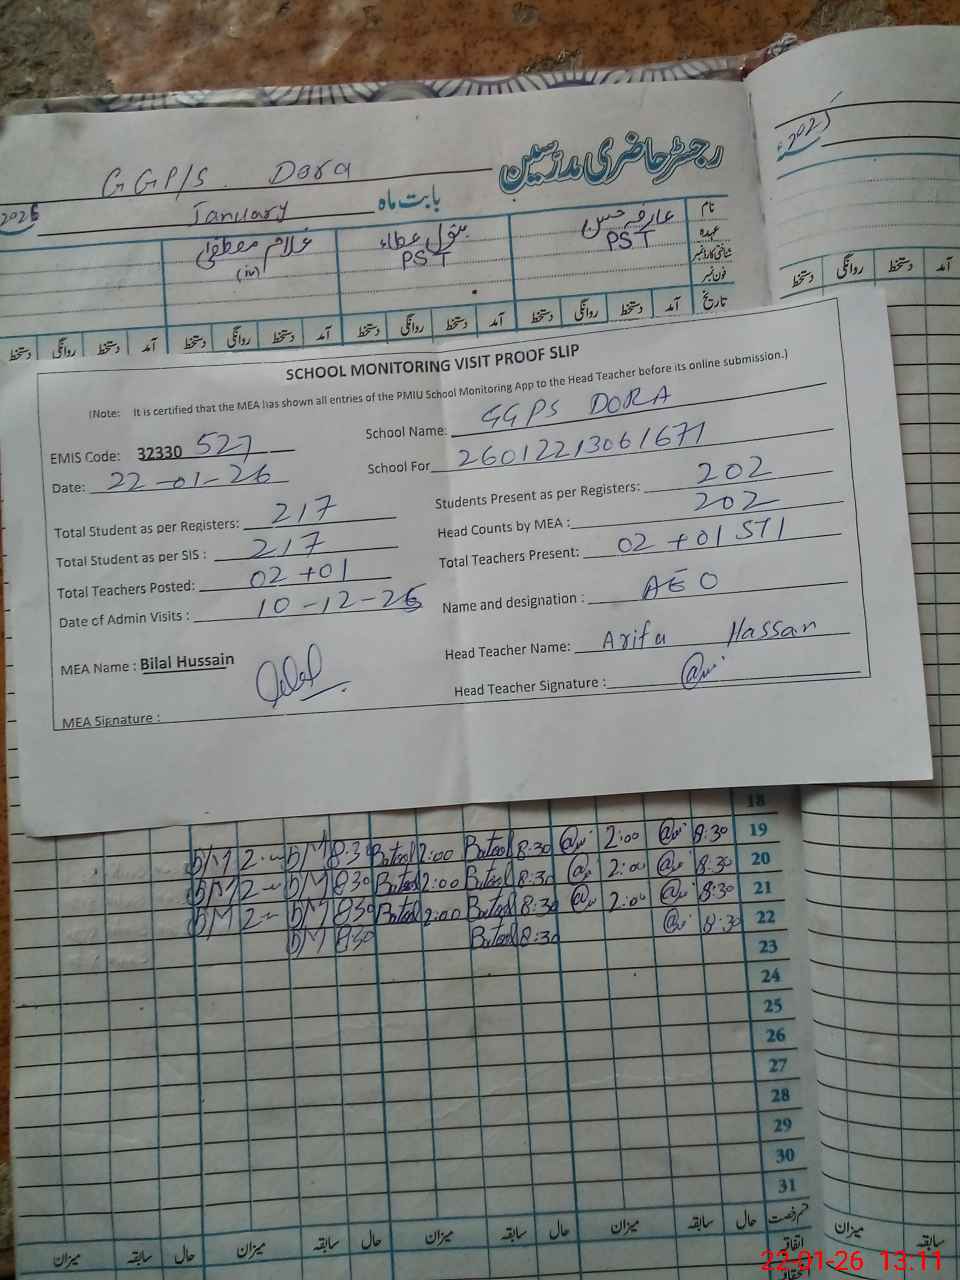 رجسٹر حاضری مدرسین
GGP/S. Dora
بابت ماہ January 2026
2025
نام عارفہ حسن بتول عطاء غلام مصطفیٰ
عہدہ PST PST
شناختی کارڈ نمبر
فون نمبر
تاریخ آمد دستخط روانگی دستخط آمد دستخط روانگی دستخط آمد دستخط روانگی دستخط آمد دستخط روانگی دستخط
آمد دستخط روانگی دستخط
SCHOOL MONITORING VISIT PROOF SLIP
(Note: It is certified that the MEA has shown all entries of the PMIU School Monitoring App to the Head Teacher before its online submission.)
EMIS Code: 32330 527 School Name: GGPS DORA
Date: 22-01-26 School For 26012213061671
Total Student as per Registers: 217 Students Present as per Registers: 202
Total Student as per SIS : 217 Head Counts by MEA : 202
Total Teachers Posted: 02 +01 Total Teachers Present: 02 +01 STI
Date of Admin Visits : 10-12-25 Name and designation : AEO
MEA Name : Bilal Hussain Head Teacher Name: Arifa Hassan
MEA Signature : Head Teacher Signature :
18
19 8:30 2:00 8:30 Batool 2:00 Batool 8:30 DM 2 DM
20 8:30 2:00 8:30 Batool 2:00 Batool 8:30 DM 2 DM
21 8:30 2:00 8:30 Batool 2:00 Batool 8:30 DM 2 DM
22 8:30 8:30 Batool 8:30 DM
23
24
25
26
27
28
29
30
31
قسم رخصت حال سابقہ میزان حال سابقہ میزان حال سابقہ میزان حال سابقہ میزان
اتفاقیہ
سابقہ میزان
22-01-26 13:11